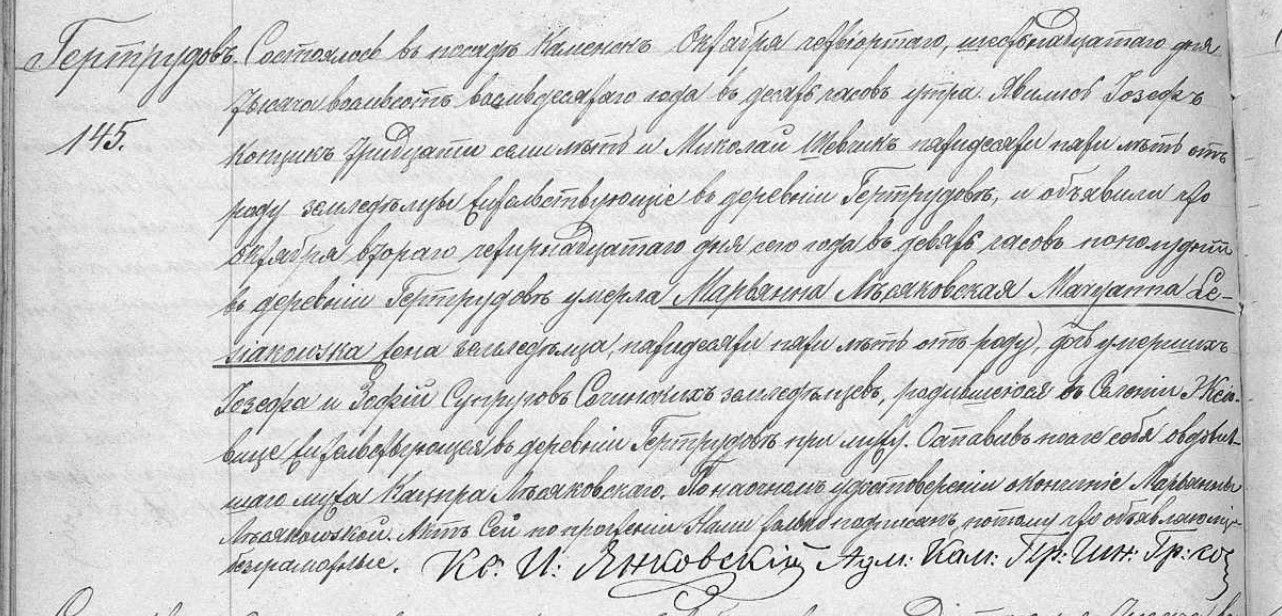 Гертрудовъ. Состоялось въ посадѣ Каменскъ Октября четвертаго, шестьнадцатаго дня
тысяча восемьсотъ восемдесятаго года въ десять часовъ утра. Явились Іозефъ
145. Копщикъ тридцати семи лѣтъ и Миколай Шевчикъ пятидесяти пяти лѣтъ отъ
роду земледѣльцы жительствующіе въ деревнии Гертрудовѣ, и объявили что
октября втораго четырнадцатаго дня сего года въ девять часовъ пополудни
въ деревнии Гертрудовѣ умерла Марьянна Лѣсяковская Maryanna Le-
siakowska жена земледѣльца, пятидесяти пяти лѣтъ отъ роду, дочь умершихъ
Іозефа и Зофіи Супруговъ земледѣльцевъ, родившаяся въ Селеніи
вице жительствующая въ деревнии Гертрудовѣ при мужу. Оставивъ после себя овдовѣв-
шаго мужа Каспра Лѣсяковскаго. По наочномъ удостовереніи о кончине Марьянны
Лѣсяковской. Актъ Сей по прочтеніи Нами только подписанъ, потому что объявляющіе
безграмотные. Кс: И: Янковскій Адм: Кам: Пр: Чин: Гр: со: